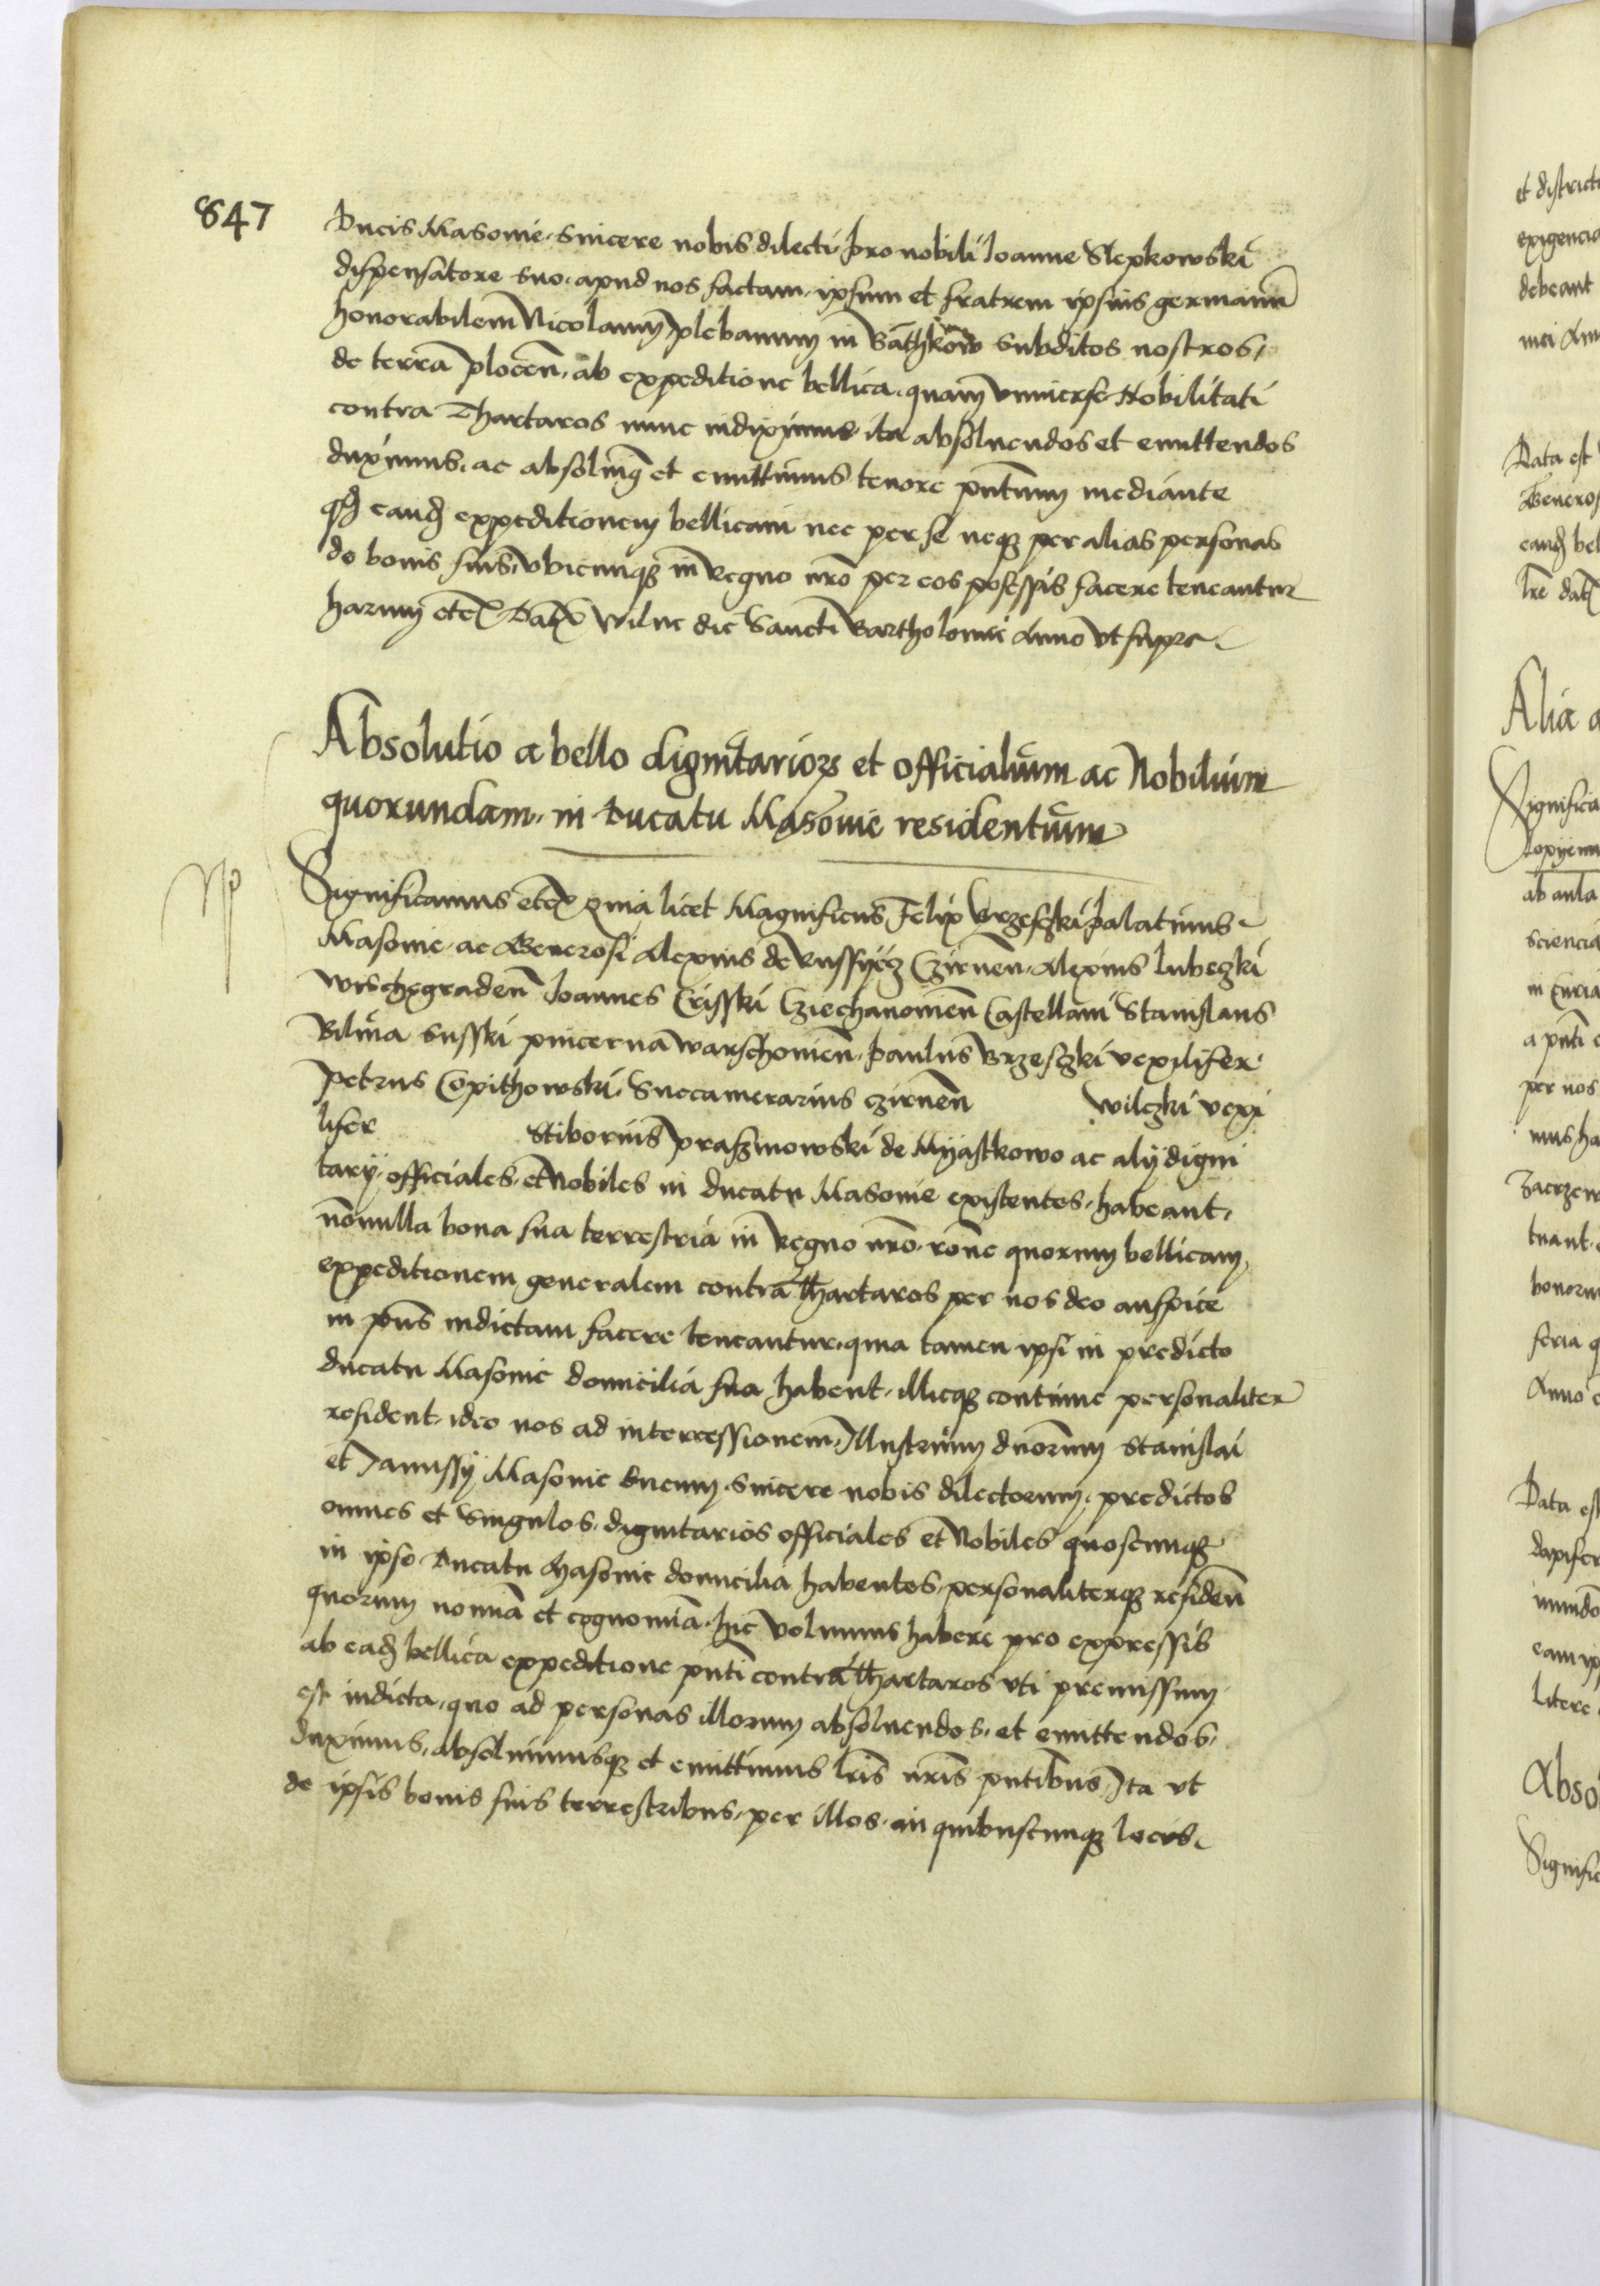 847
Ducis Masovie sincere nobis dilecti pro nobili Joanne Slepkowski
dispensatore suo apud nos factam, ipsum et fratrem ipsius germanũ
honorabilem Nicolaum plebanum in Bathkow subditos nostros,
de terra plocen̄. ab expeditione bellica, quam universe Nobilitati
contra Thartaros nunc indiximus, ita absolvendos et emittendos
duximus, ac absolvimꝰ et emittimus tenore pñtium mediante
eandꝫ expeditionem bellicam nec per se neqꝫ per alias personas
de bonis suis, ubicunqꝫ in Regno nr̃o per eos possessis facere teneantur
harum etcꝫ Datꝫ Wilne die Sancti Bartholomei Anno ut supra.
Absolutio a bello dignitarioꝝ et officialium ac Nobilium
quorundam in Ducatu Masovie residentium
Significamus etcꝫ quia licet Magnificus Felix Brzesczki palatinus
Masovie ac Generosi Alexius de Czirnen̄. Alexius Lubeczki
Wischegraden̄ Joannes Crisski Cziechanovien̄ Castellani Stanislaus
Bilina Susski pincerna Warschovien̄. paulus Brzesczki vexilifer
petrus Copithowski Succamerarius czirnen̄ Wilczki vexi
lifer Stiborius prazmowski de Myastkowo ac alij digni
tarij, officiales, et Nobiles in ducatu Masovie existentes, habeant
nõnulla bona sua terrestria in Regno nr̃o, rõne quorum bellicam
expeditionem generalem contra Thartaros per nos deo auspice
in pñs indictam facere teneantur, quia tamen ipsi in predicto
ducatu Masovie domicilia sua habent, illicqꝫ continue personaliter
resident, ideo nos ad intercessionem Illustrium dñorum Stanislai
et Janussij Masovie Ducum, sincere nobis dilectorum, predictos
omnes et singulos, dignitarios officiales et Nobiles quoscunqꝫ
in ipso Ducatu Masovie domicilia habentes, personaliterqꝫ residen̄
quorum nomina et cognomina hic volumus habere pro expressis
ab eadꝫ bellica expeditione pñti contra Thartaros uti premissum
est indicta, quo ad personas illorum absolvendos, et emittendos,
duximus, absolvimusqꝫ et emittimus lr̃is nr̃is pñtibus, Ita ut
de ipsis bonis suis terrestribus, per illos, in quibuscunqꝫ locis